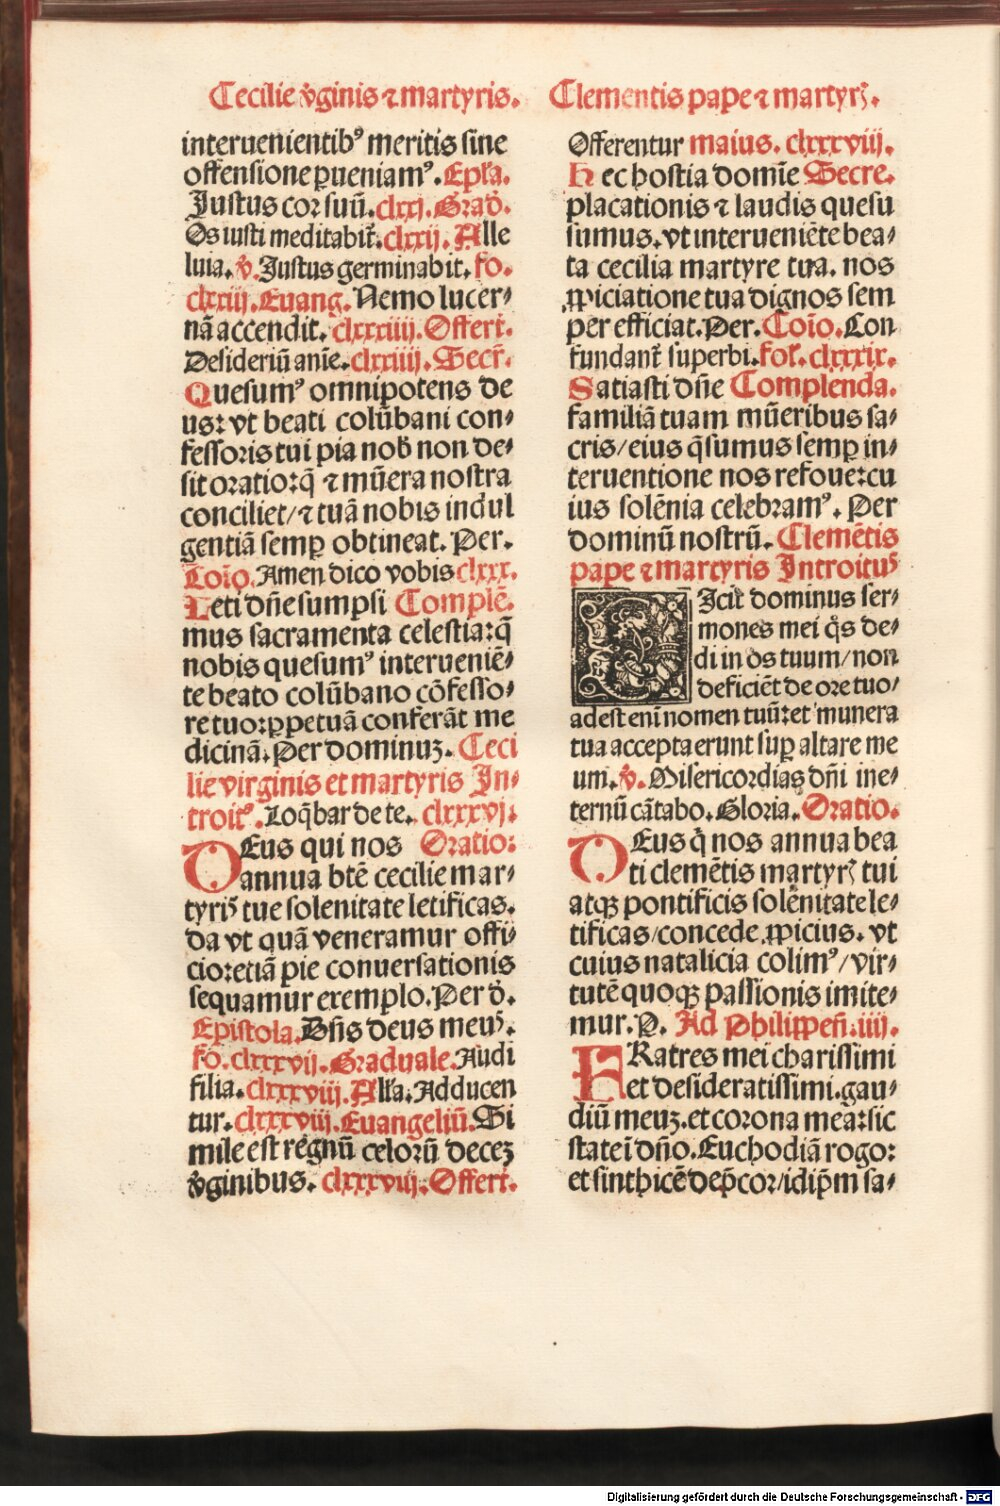 Cecilie v̊ginis ⁊ martyris.
Clementis pape ⁊ martyrꝭ.
interuenientibꝰ meritis sine
offensione ꝑueniamꝰ. Epl̃a.
Justus cor suũ. clxxj. Grad̃.
Os iusti meditabit̃. clxxij. Alle
luia. v̊. Justus germinabit. fo.
clxxiij. Euang. Nemo lucer⸗
nã accendit. clxxxiiij. Offert̃.
Desideriũ anie. clxxiiij. Secr̃.
Quesumꝰ omnipotens de
us: vt beati colũbani con⸗
fessoris tui pia nob̃ non de⸗
sit oratio: q̃ ⁊ mũera nostra
conciliet/ ⁊ tuã nobis indul
gentiã semꝑ obtineat. Per.
Cõio. Amen dico vobis clxxx.
Leti dñe sumpsi Complẽ.
mus sacramenta celestia: q̃
nobis quesumꝰ interueniẽ⸗
te beato colũbano cõfesso⸗
re tuo: ꝑpetuã conferãt me
dicinã. Per dominuꝫ. Ceci
lie virginis et martyris In⸗
troitꝰ. Loq̃bar de te. clxxxvj.
DEus qui nos Oratio:
annua btẽ cecilie mar⸗
tyrꝭ tue solenitate letificas.
da vt quã veneramur offi⸗
cio: etiã pie conuersationis
sequamur exemplo. Per d̃.
Epistola. Dñs deus meuꝰ.
fo. clxxxvij. Graduale. Audi
filia. clxxxviij. All̃a. Adducen
tur. clxxxviij. Euangeliũ. Si
mile est regnũ celorũ deceꝫ
v̊ginibus. clxxxviij. Offert.
Offerentur maius. clxxxviij.
Hec hostia domĩe Secre.
placationis ⁊ laudis quesu
sumus. vt interueniẽte bea⸗
ta cecilia martyre tua. nos
ꝓpiciatione tua dignos sem
per efficiat. Per. Cõio. Con
fundant̃ superbi. fol. clxxxix.
Satiasti dñe Complenda.
familiã tuam mũeribus sa⸗
cris/ eius q̃sumus semꝑ in⸗
teruentione nos refoue: cu
ius solẽnia celebramꝰ. Per
dominũ nostrũ. Clemẽtis
pape ⁊ martyris Introituꝰ
DIcit dominus ser⸗
mones mei q̊s de⸗
di in os tuum/ non
deficiẽt de ore tuo/
adest eni nomen tuũ: et munera
tua accepta erunt suꝑ altare me
um. v̊. Misericordias dñi ine⸗
ternũ cãtabo. Gloria. Oratio.
DEus q̇ nos annua bea
ti clemẽtis martyrꝭ tui
atqꝫ pontificis solẽnitate le⸗
tificas/ concede ꝓpicius. vt
cuius natalicia colimꝰ/ vir⸗
tutẽ quoqꝫ passionis imite⸗
mur. P. Ad Philippeñ. iiij.
FRatres mei charissimi
et desideratissimi. gau⸗
diũ meuꝫ. et corona mea: sic
state ĩ dño. Euchodiã rogo:
et sinthicẽ dep̃cor/ idip̃m sa⸗
Digitalisierung gefördert durch die Deutsche Forschungsgemeinschaft - DFG